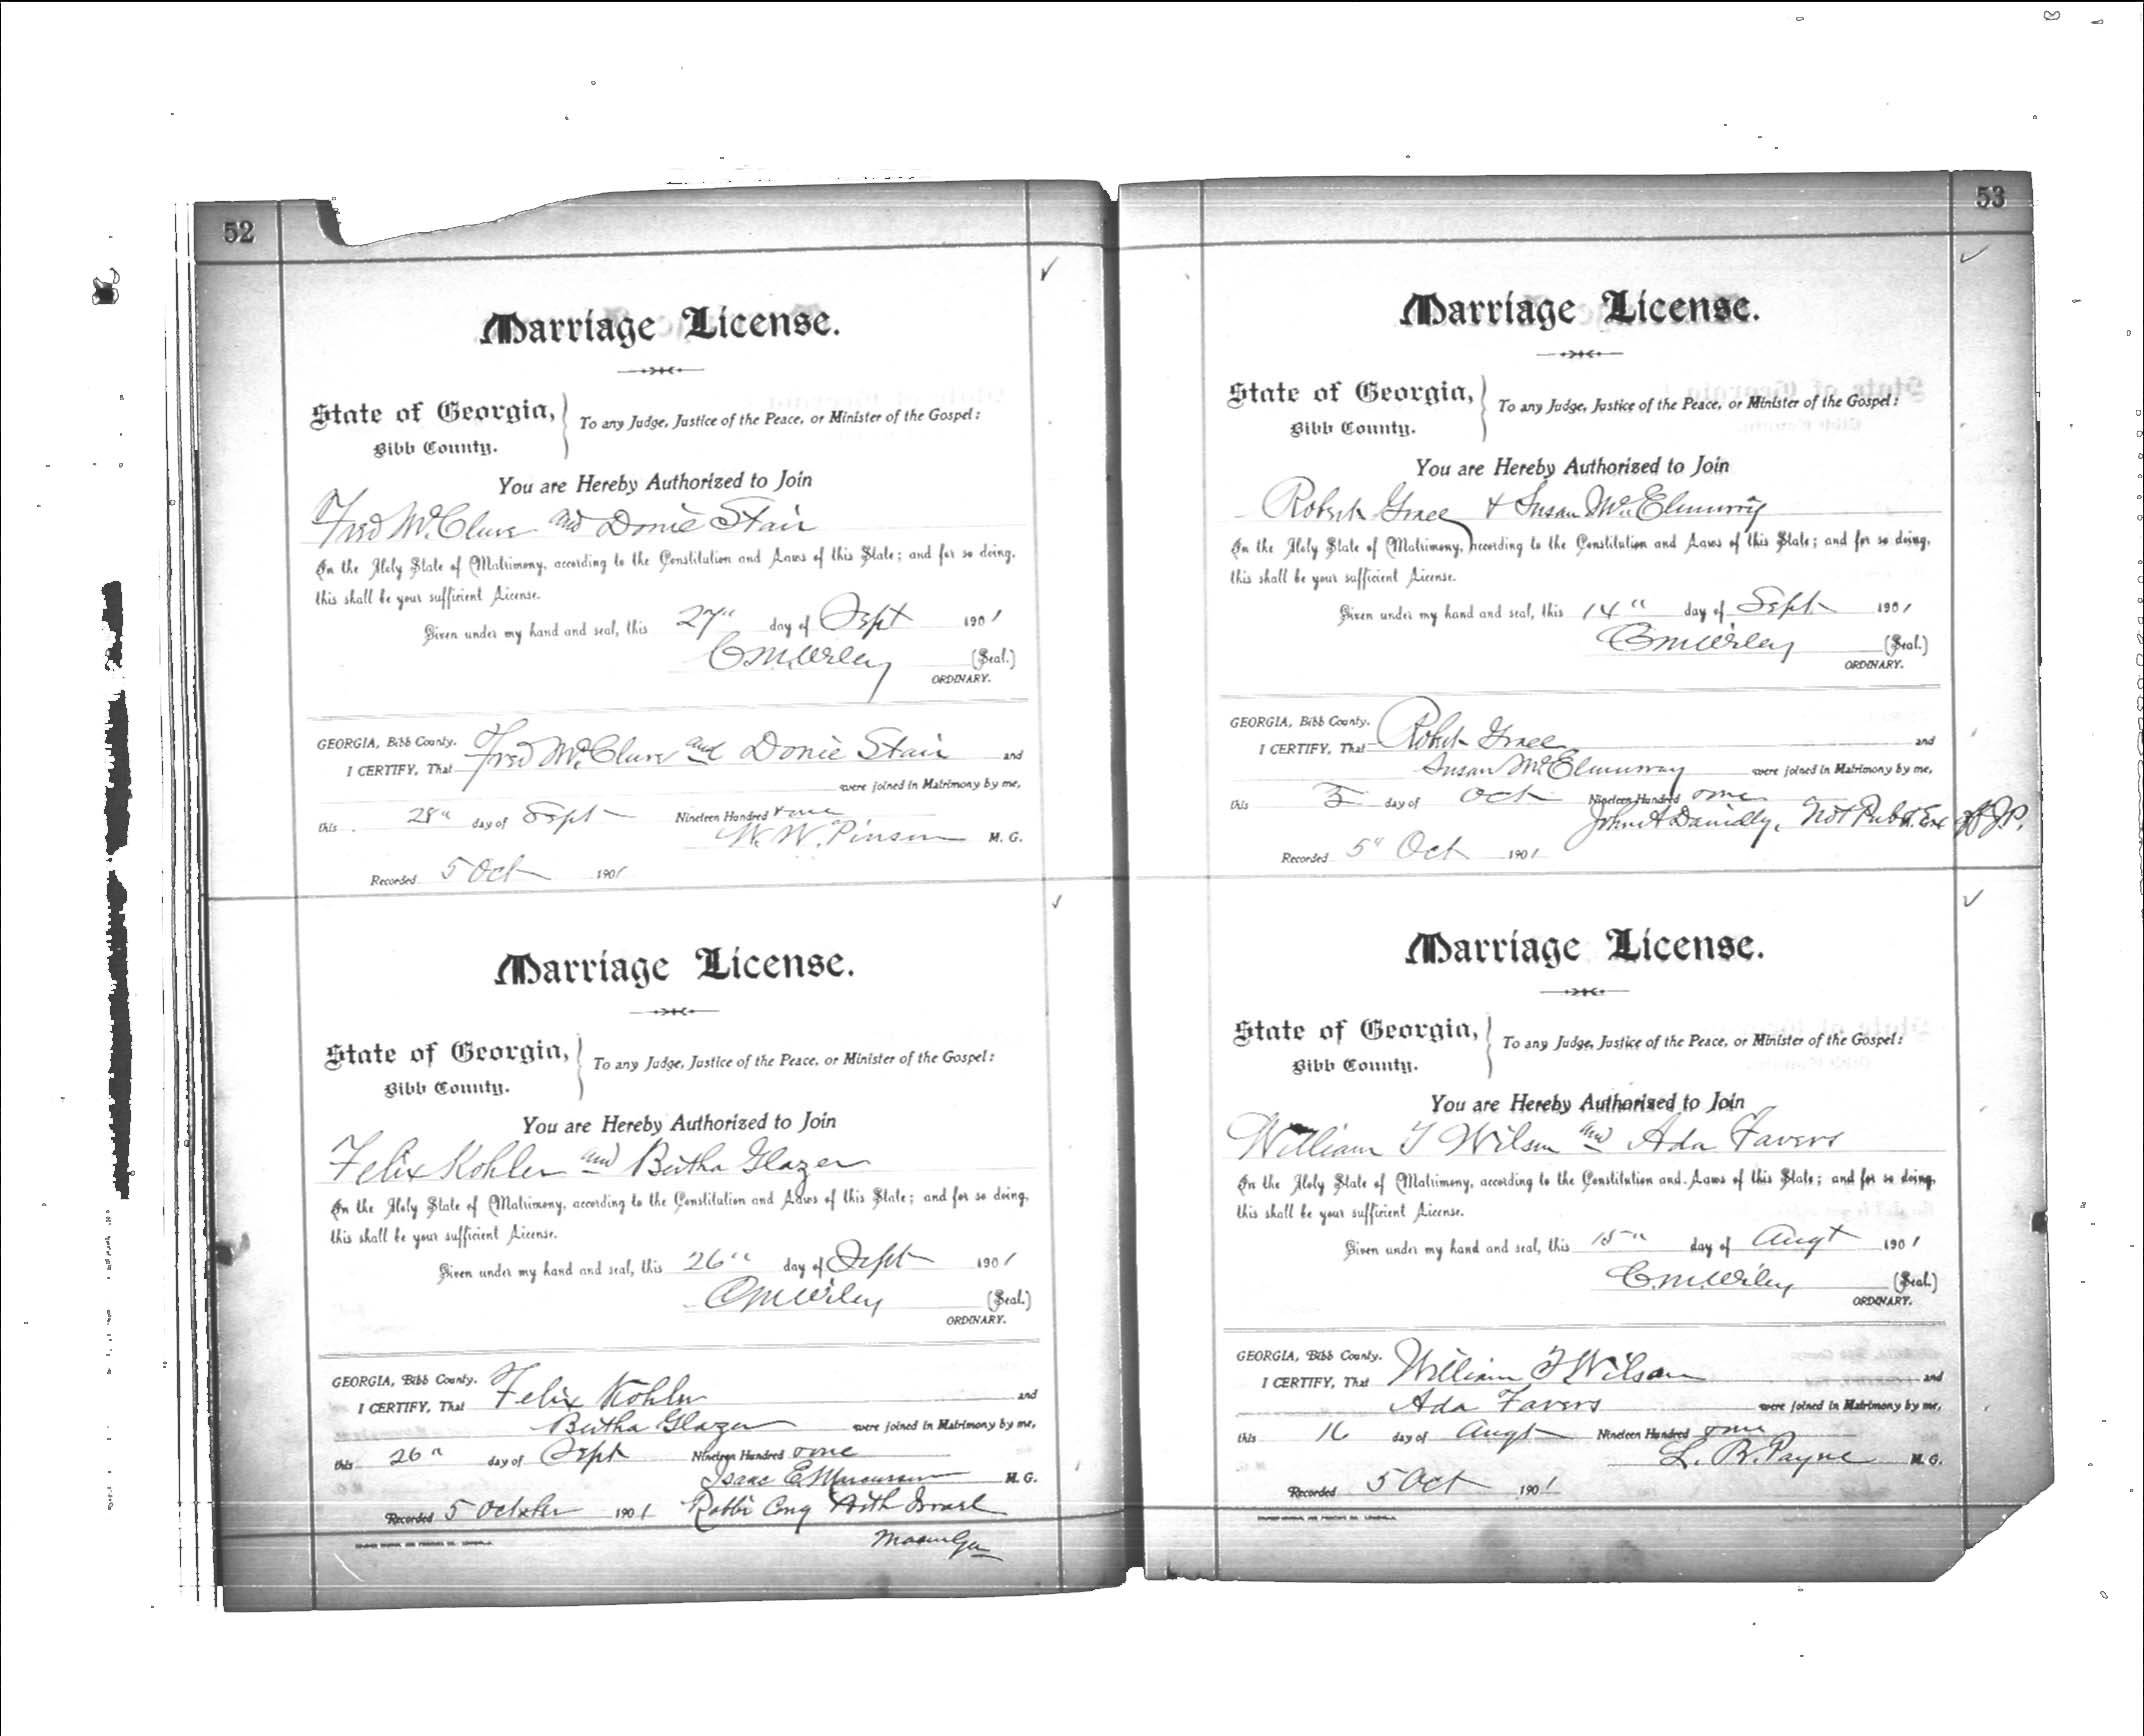 52
Marriage License.
State of Georgia,
Bibb County.
To any Judge, Justice of the Peace, or Minister of the Gospel:
You are Hereby Authorized to Join
Fred McClure and Donie Stair
In the Holy State of Matrimony, according to the Constitution and Laws of this State; and for so doing,
this shall be your sufficient License.
Given under my hand and seal, this 27" day of Sept 1901
C M Wiley (Seal.)
ORDINARY.
GEORGIA, Bibb County.
I CERTIFY, That Fred McClure and Donie Stair and
were joined in Matrimony by me,
this 28" day of Sept Nineteen Hundred one
W. W. Pinson M. G.
Recorded 5 Oct 1901
Marriage License.
State of Georgia,
Bibb County.
To any Judge, Justice of the Peace, or Minister of the Gospel:
You are Hereby Authorized to Join
Felix Kohler and Bertha Glazer
In the Holy State of Matrimony, according to the Constitution and Laws of this State; and for so doing,
this shall be your sufficient License.
Given under my hand and seal, this 26" day of Sept 1901
C M Wiley (Seal.)
ORDINARY.
GEORGIA, Bibb County.
I CERTIFY, That Felix Kohler and
Bertha Glazer were joined in Matrimony by me,
this 26" day of Sept Nineteen Hundred one
Isaac E. Marcuson M. G.
Recorded 5 October 1901 Rabbi Cong Beth Israel
Macon Ga
53
Marriage License.
State of Georgia,
Bibb County.
To any Judge, Justice of the Peace, or Minister of the Gospel:
You are Hereby Authorized to Join
Robert Grace & Susan McElmurray
In the Holy State of Matrimony, according to the Constitution and Laws of this State; and for so doing,
this shall be your sufficient License.
Given under my hand and seal, this 14" day of Sept 1901
C M Wiley (Seal.)
ORDINARY.
GEORGIA, Bibb County.
I CERTIFY, That Robert Grace and
Susan McElmurray were joined in Matrimony by me,
this 5 day of Oct Nineteen Hundred one
John A Not Pub & Ex off J.P.
Recorded 5" Oct 1901
Marriage License.
State of Georgia,
Bibb County.
To any Judge, Justice of the Peace, or Minister of the Gospel:
You are Hereby Authorized to Join
William T Wilson and Ada Favors
In the Holy State of Matrimony, according to the Constitution and Laws of this State; and for so doing,
this shall be your sufficient License.
Given under my hand and seal, this 15" day of Augt 1901
C. M. Wiley (Seal.)
ORDINARY.
GEORGIA, Bibb County.
I CERTIFY, That William T Wilson and
Ada Favors were joined in Matrimony by me,
this 16 day of Augt Nineteen Hundred one
L. B. Payne M. G.
Recorded 5 Oct 1901